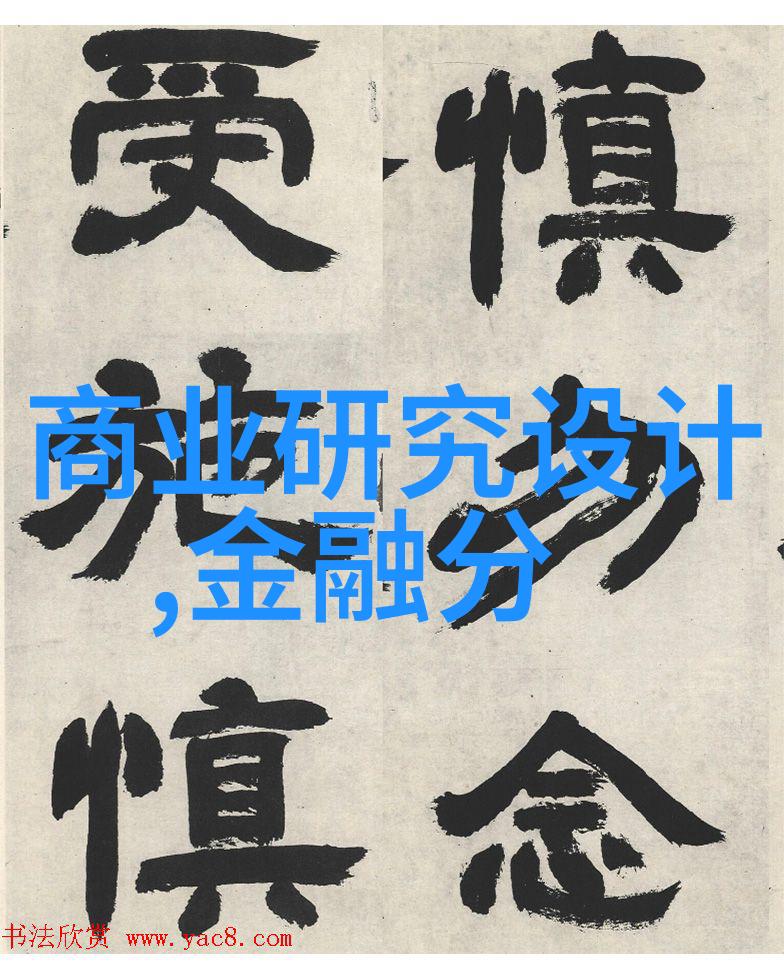 慎勿念
受施慎
商业研究设计
,金融分
书法欣赏 www.yac8.com